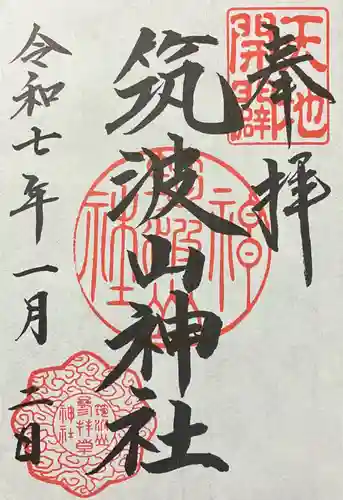 奉拝
天地開闢
筑波山神社
筑波山神社
令和七年一月二日
筑波山神社参拝章